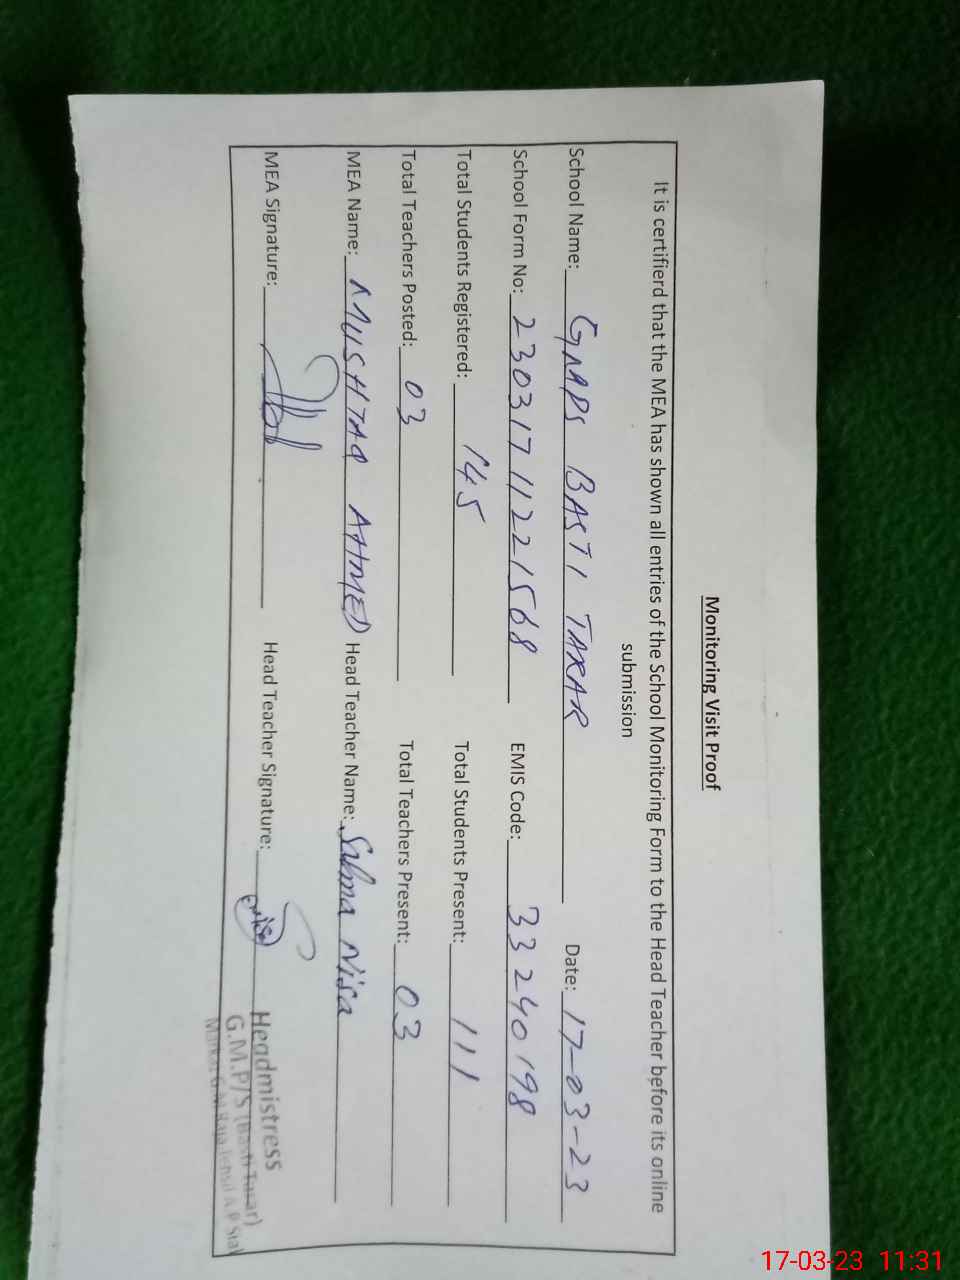 Monitoring Visit Proof
It is certifierd that the MEA has shown all entries of the School Monitoring Form to the Head Teacher before its online
submission
School Name: GMPS BASTI TARAR Date: 17-03-23
School Form No: 23031711221568 EMIS Code: 33240198
Total Students Registered: 145 Total Students Present: 111
Total Teachers Posted: 03 Total Teachers Present: 03
MEA Name: MUSHTAQ AHMED Head Teacher Name: Salma Nisa
MEA Signature: Head Teacher Signature:
Headmistress
G.M.P/S (Basti Tarar)
17-03-23 11:31